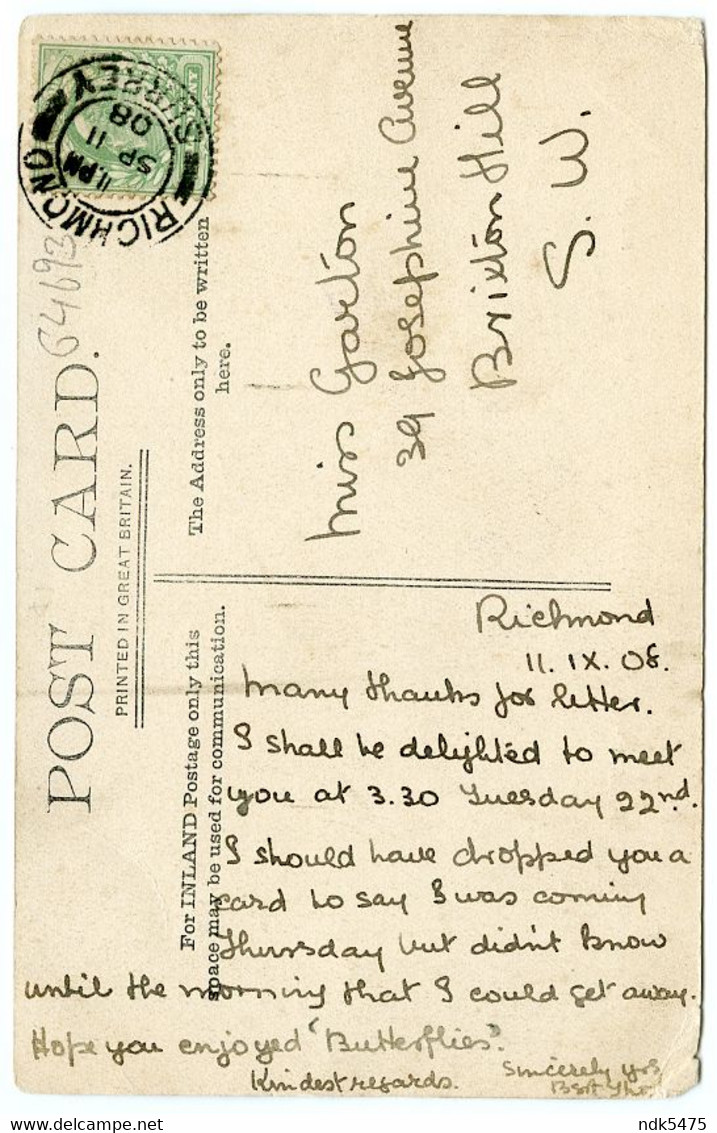 RICHMOND
SURREY
11. PM
SP 11
08
64693
POST CARD.
PRINTED IN GREAT BRITAIN.
The Address only to be written
here.
Miss Garton
39 Josephine Avenue
Brixton Hill
S. W.
For INLAND Postage only this
space may be used for communication.
Richmond
11. IX. 08.
Many thanks for letter.
I shall be delighted to meet
you at 3.30 Tuesday 22nd.
I should have dropped you a
card to say I was coming
Thursday but didn't know
until the morning that I could get away.
Hope you enjoyed "Butterflies".
Kindest regards.
Sincerely yrs
Bert
ndk5475